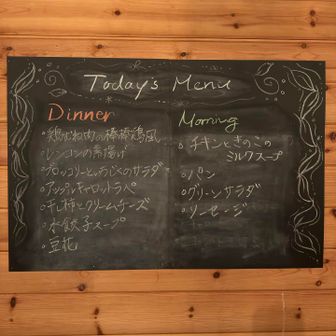 Today's Menu
Dinner
・鶏むね肉の棒棒鶏風
・レンコンの素揚げ
・ブロッコリーとちくわのサラダ
・アップルキャロットラペ
・干し柿とクリームチーズ
・水餃子スープ
・豆花
Morning
・チキンときのこの
ミルクスープ
・パン
・グリーンサラダ
・ソーセージ